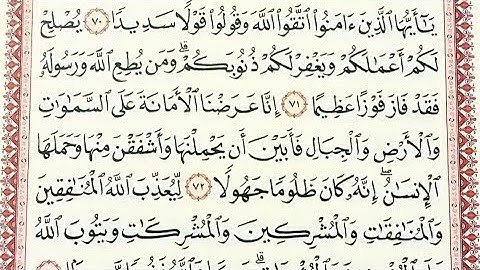 يَـٰٓأَيُّهَا ٱلَّذِينَ ءَامَنُوا۟ ٱتَّقُوا۟ ٱللَّهَ وَقُولُوا۟ قَوْلًا سَدِيدًا ٧٠ يُصْلِحْ
لَكُمْ أَعْمَـٰلَكُمْ وَيَغْفِرْ لَكُمْ ذُنُوبَكُمْ ۗ وَمَن يُطِعِ ٱللَّهَ وَرَسُولَهُۥ
فَقَدْ فَازَ فَوْزًا عَظِيمًا ٧١ إِنَّا عَرَضْنَا ٱلْأَمَانَةَ عَلَى ٱلسَّمَـٰوَٰتِ
وَٱلْأَرْضِ وَٱلْجِبَالِ فَأَبَيْنَ أَن يَحْمِلْنَهَا وَأَشْفَقْنَ مِنْهَا وَحَمَلَهَا
ٱلْإِنسَـٰنُ ۖ إِنَّهُۥ كَانَ ظَلُومًا جَهُولًا ٧٢ لِّيُعَذِّبَ ٱللَّهُ ٱلْمُنَـٰفِقِينَ
وَٱلْمُنَـٰفِقَـٰتِ وَٱلْمُشْرِكِينَ وَٱلْمُشْرِكَـٰتِ وَيَتُوبَ ٱللَّهُ